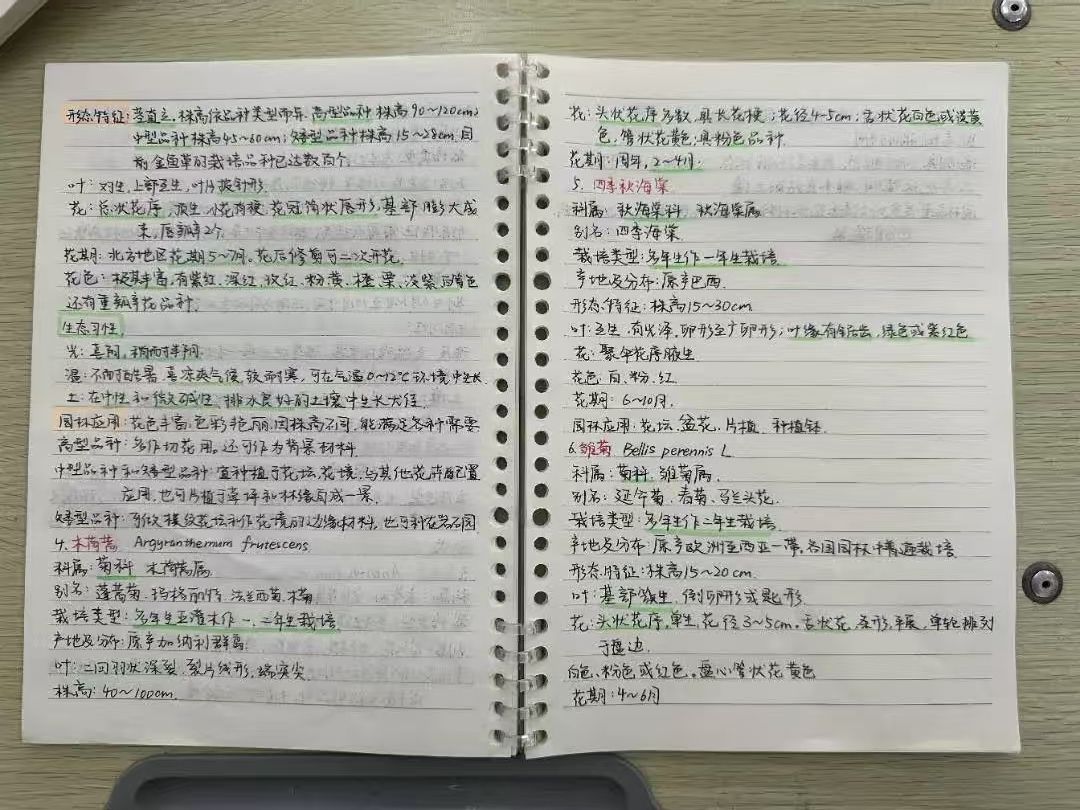 形态特征：茎直立，株高依品种类型而异，高型品种株高90～120cm；
中型品种株高45～60cm；矮型品种株高15～28cm，目
前金鱼草的栽培品种已达数百个。
叶：对生，上部互生，叶片披针形。
花：总状花序，顶生，小花有梗，花冠筒状唇形，基部膨大成
囊，唇瓣2个。
花期：北方地区花期5～7月。花后修剪可二次开花。
花色：极其丰富，有紫红、深红、玫红、粉、黄、橙、栗、淡紫、白等色
还有重瓣等花品种。
生态习性
光：喜阳，稍耐半阴
温：不耐酷暑，喜凉爽气候，较耐寒，可在气温0～12℃环境中生长
土：在中性和微碱性、排水良好的土壤中生长尤佳。
园林应用：花色丰富，色彩艳丽，因株高不同，能满足各种需要
高型品种：多作切花用。还可作为背景材料
中型品种和矮型品种：宜种植于花坛、花境，与其他花卉配置
应用，也可片植于草坪和林缘自成一景。
矮型品种：可做模纹花坛和作花境的边缘材料，也可种在岩石园
4. 木茼蒿 Argyranthemum frutescens
科属：菊科 木茼蒿属
别名：蓬蒿菊、玛格丽特、法兰西菊、木菊
栽培类型：多年生亚灌木作一、二年生栽培。
产地及分布：原产加纳利群岛。
叶：二回羽状深裂，裂片线形，端突尖
株高：40～100cm。
花：头状花序多数，具长花梗；花径4～5cm；舌状花白色或淡黄
色，管状花黄色；具粉色品种。
花期：周年，2～4月。
5. 四季秋海棠
科属：秋海棠科，秋海棠属
别名：四季海棠
栽培类型：多年生作一年生栽培
产地及分布：原产巴西
形态特征：株高15～30cm
叶：互生，有光泽，卵形至广卵形；叶缘有锯齿，绿色或紫红色
花：聚伞花序腋生
花色：白、粉、红
花期：6～10月
园林应用：花坛、盆花、片植、种植钵。
6. 雏菊 Bellis perennis L
科属：菊科，雏菊属。
别名：延命菊、春菊、马兰头花。
栽培类型：多年生作二年生栽培。
产地及分布：原产欧洲至西亚一带，各国园林中普遍栽培
形态特征：株高15～20cm.
叶：基部簇生，倒卵形或匙形
花：头状花序，单生，花径3～5cm。舌状花，条形，平展，单轮排列
于盘边
白色、粉色或红色。盘心管状花黄色
花期：4～6月